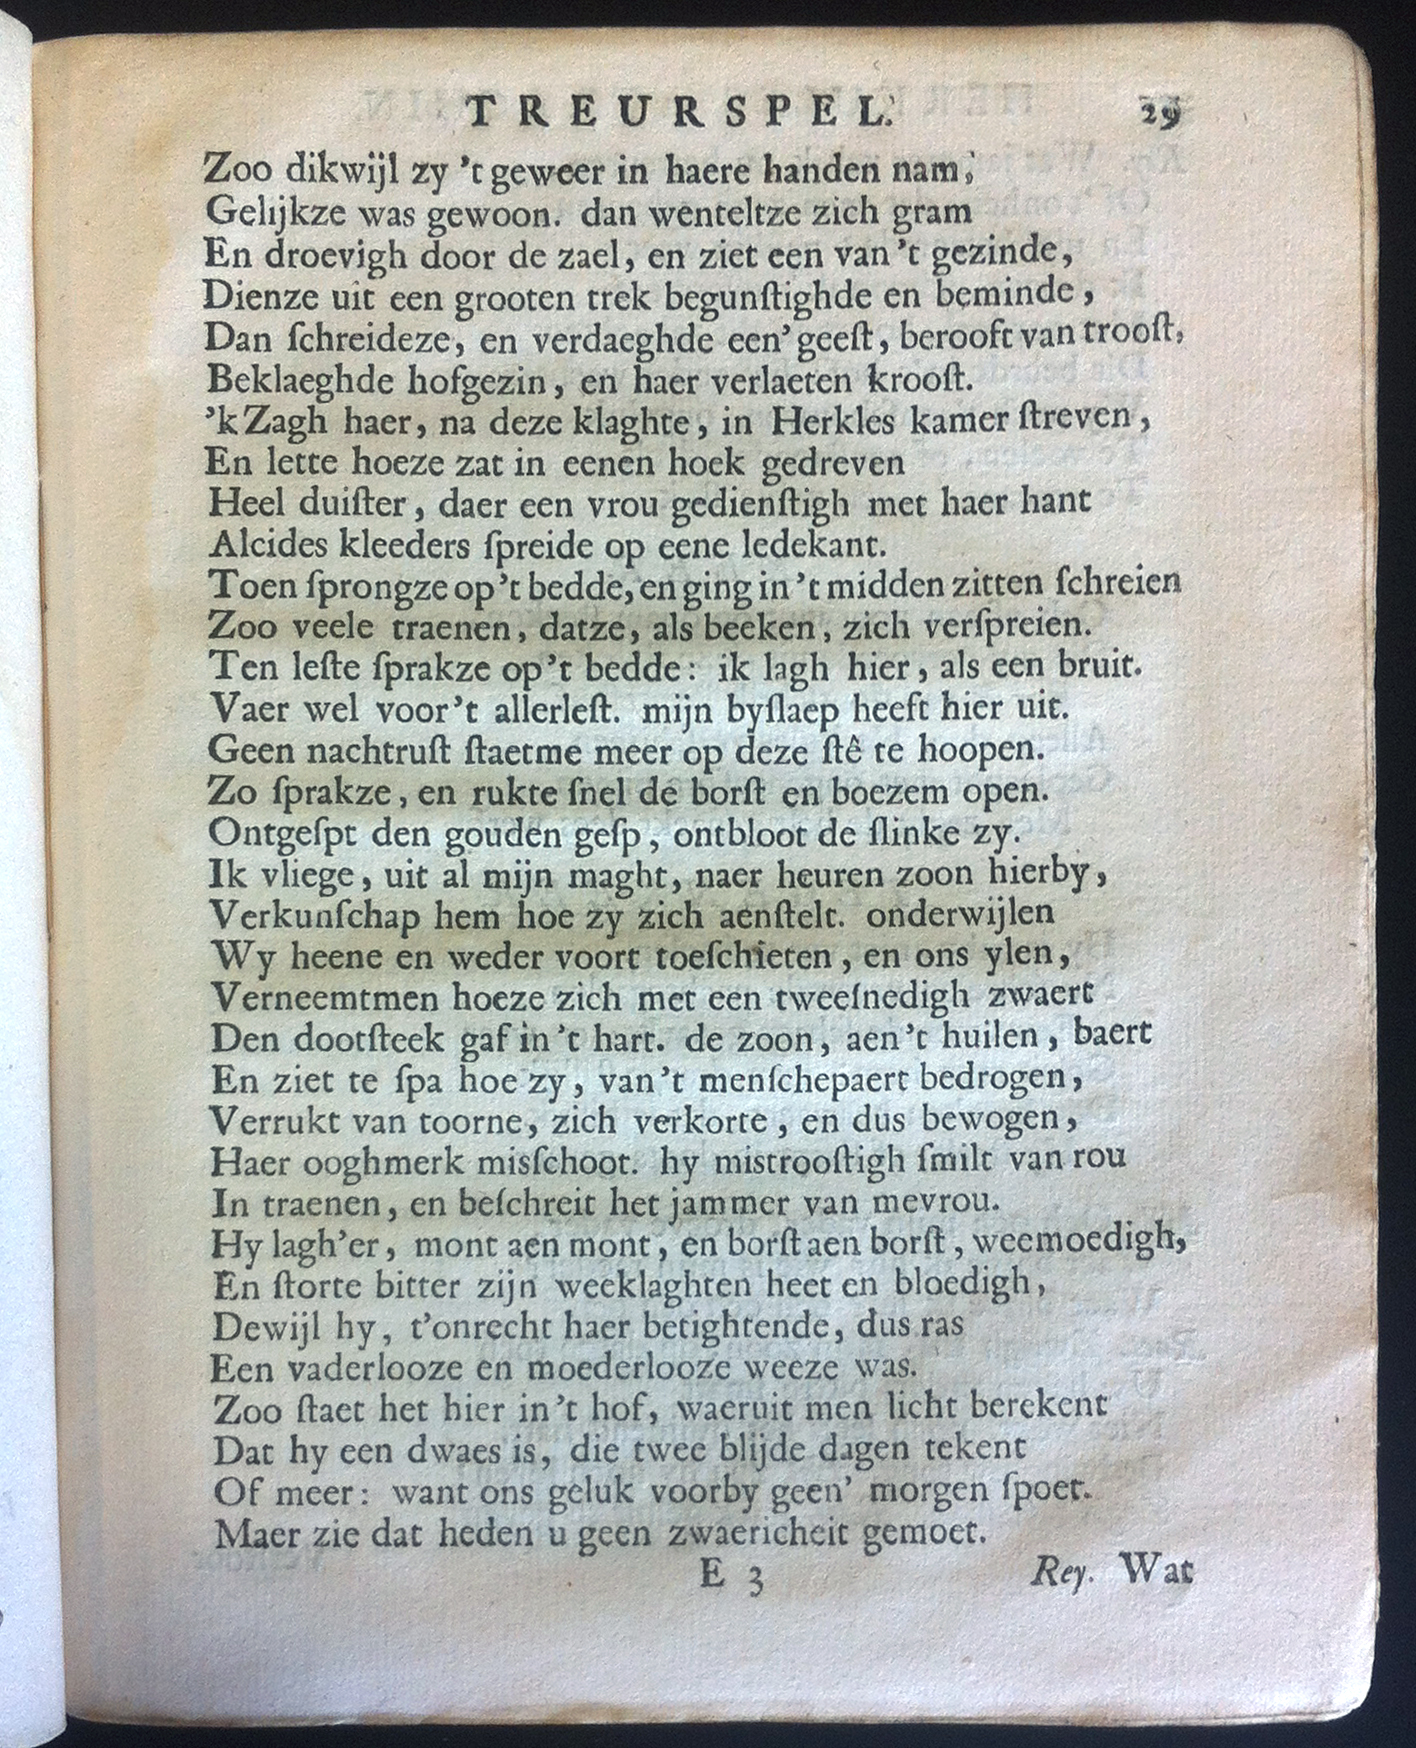 TREURSPEL. 29
Zoo dikwijl zy 't geweer in haere handen nam,
Gelijkze was gewoon. dan wenteltze zich gram
En droevigh door de zael, en ziet een van 't gezinde,
Dienze uit een grooten trek begunſtighde en beminde,
Dan ſchreideze, en verdaeghde een' geeſt, berooft van trooſt,
Beklaeghde hofgezin, en haer verlaeten krooſt.
'k Zagh haer, na deze klaghte, in Herkles kamer ſtreven,
En lette hoeze zat in eenen hoek gedreven
Heel duiſter, daer een vrou gedienſtigh met haer hant
Alcides kleeders ſpreide op eene ledekant.
Toen ſprongze op 't bedde, en ging in 't midden zitten ſchreien
Zoo veele traenen, datze, als beeken, zich verſpreien.
Ten leſte ſprakze op 't bedde: ik lagh hier, als een bruit.
Vaer wel voor 't allerleſt. mijn byſlaep heeft hier uit.
Geen nachtruſt ſtaetme meer op deze ſtê te hoopen.
Zo ſprakze, en rukte ſnel de borſt en boezem open.
Ontgeſpt den gouden geſp, ontbloot de ſlinke zy.
Ik vliege, uit al mijn maght, naer heuren zoon hierby,
Verkunſchap hem hoe zy zich aenſtelt. onderwijlen
Wy heene en weder voort toeſchieten, en ons ylen,
Verneemtmen hoeze zich met een tweeſnedigh zwaert
Den dootſteek gaf in 't hart. de zoon, aen 't huilen, baert
En ziet te ſpa hoe zy, van 't menſchepaert bedrogen,
Verrukt van toorne, zich verkorte, en dus bewogen,
Haer ooghmerk misſchoot. hy mistrooſtigh ſmilt van rou
In traenen, en beſchreit het jammer van mevrou.
Hy lagh'er, mont aen mont, en borſt aen borſt, weemoedigh,
En ſtorte bitter zijn weeklaghten heet en bloedigh,
Dewijl hy, t'onrecht haer betightende, dus ras
Een vaderlooze en moederlooze weeze was.
Zoo ſtaet het hier in 't hof, waeruit men licht berekent
Dat hy een dwaes is, die twee blijde dagen tekent
Of meer: want ons geluk voorby geen' morgen ſpoet.
Maer zie dat heden u geen zwaericheit gemoet.
E 3 Rey. Wat